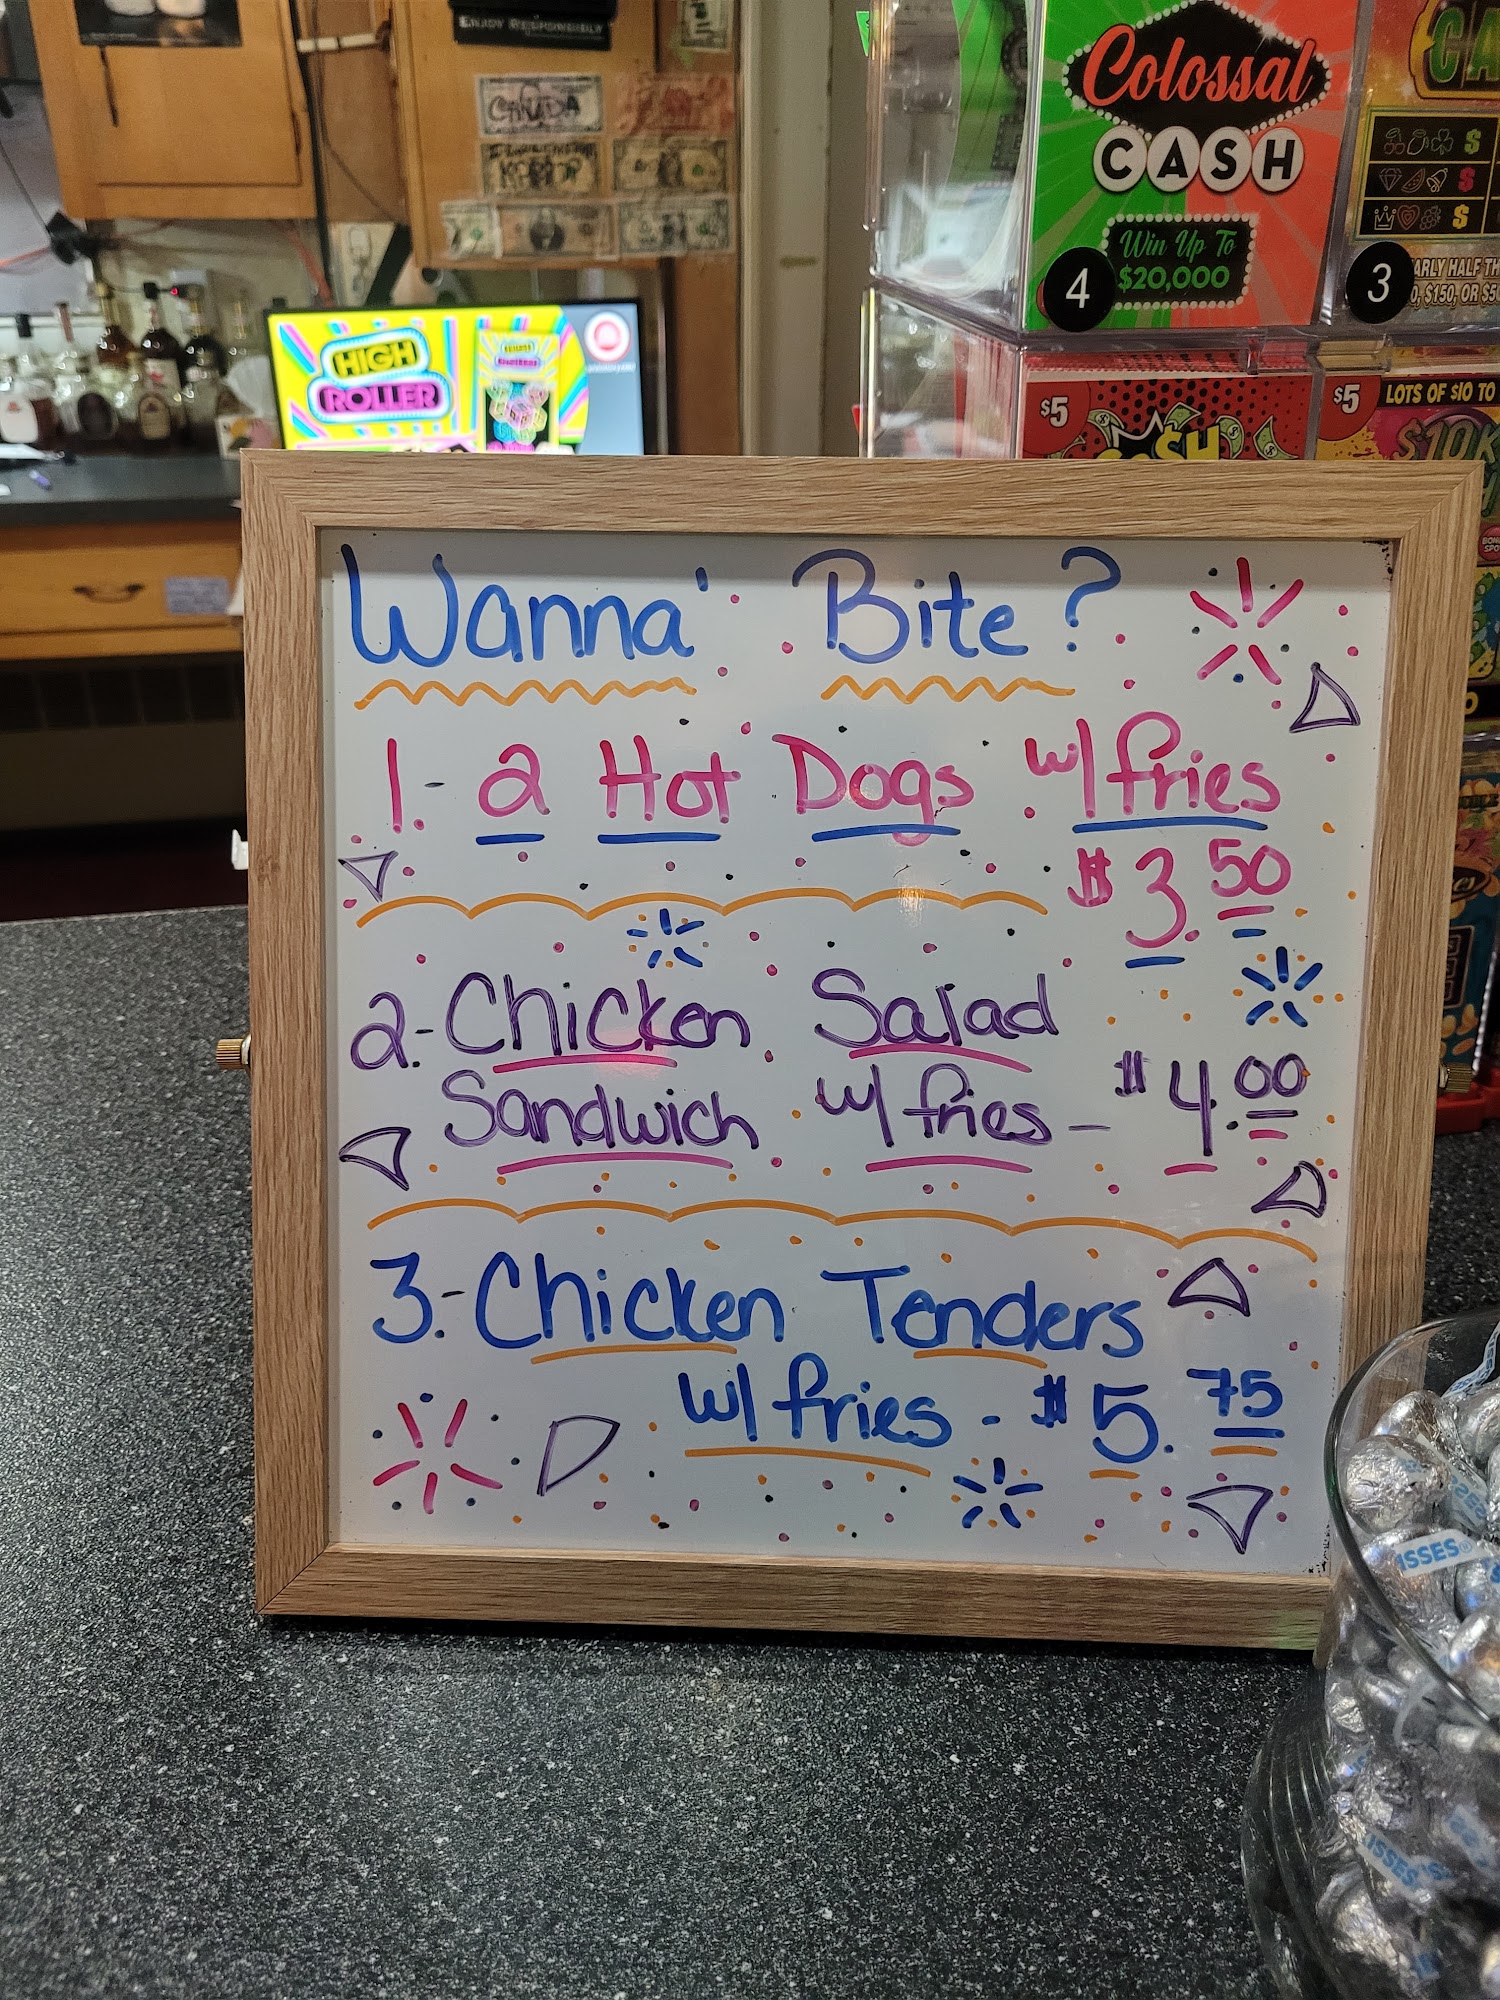 ENJOY RESPONSIBLY
CANADA
HIGH
ROLLER
Colossal
CASH
Win Up To
$20,000
4
3
$5
CASH
$5
LOTS OF $10 TO
$10K
Wanna' Bite?
1.- 2 Hot Dogs w/ fries
$3.50
2.- Chicken Salad
Sandwich w/ fries - $4.00
3.- Chicken Tenders
w/ fries - $5.75
ISSES
ISSES